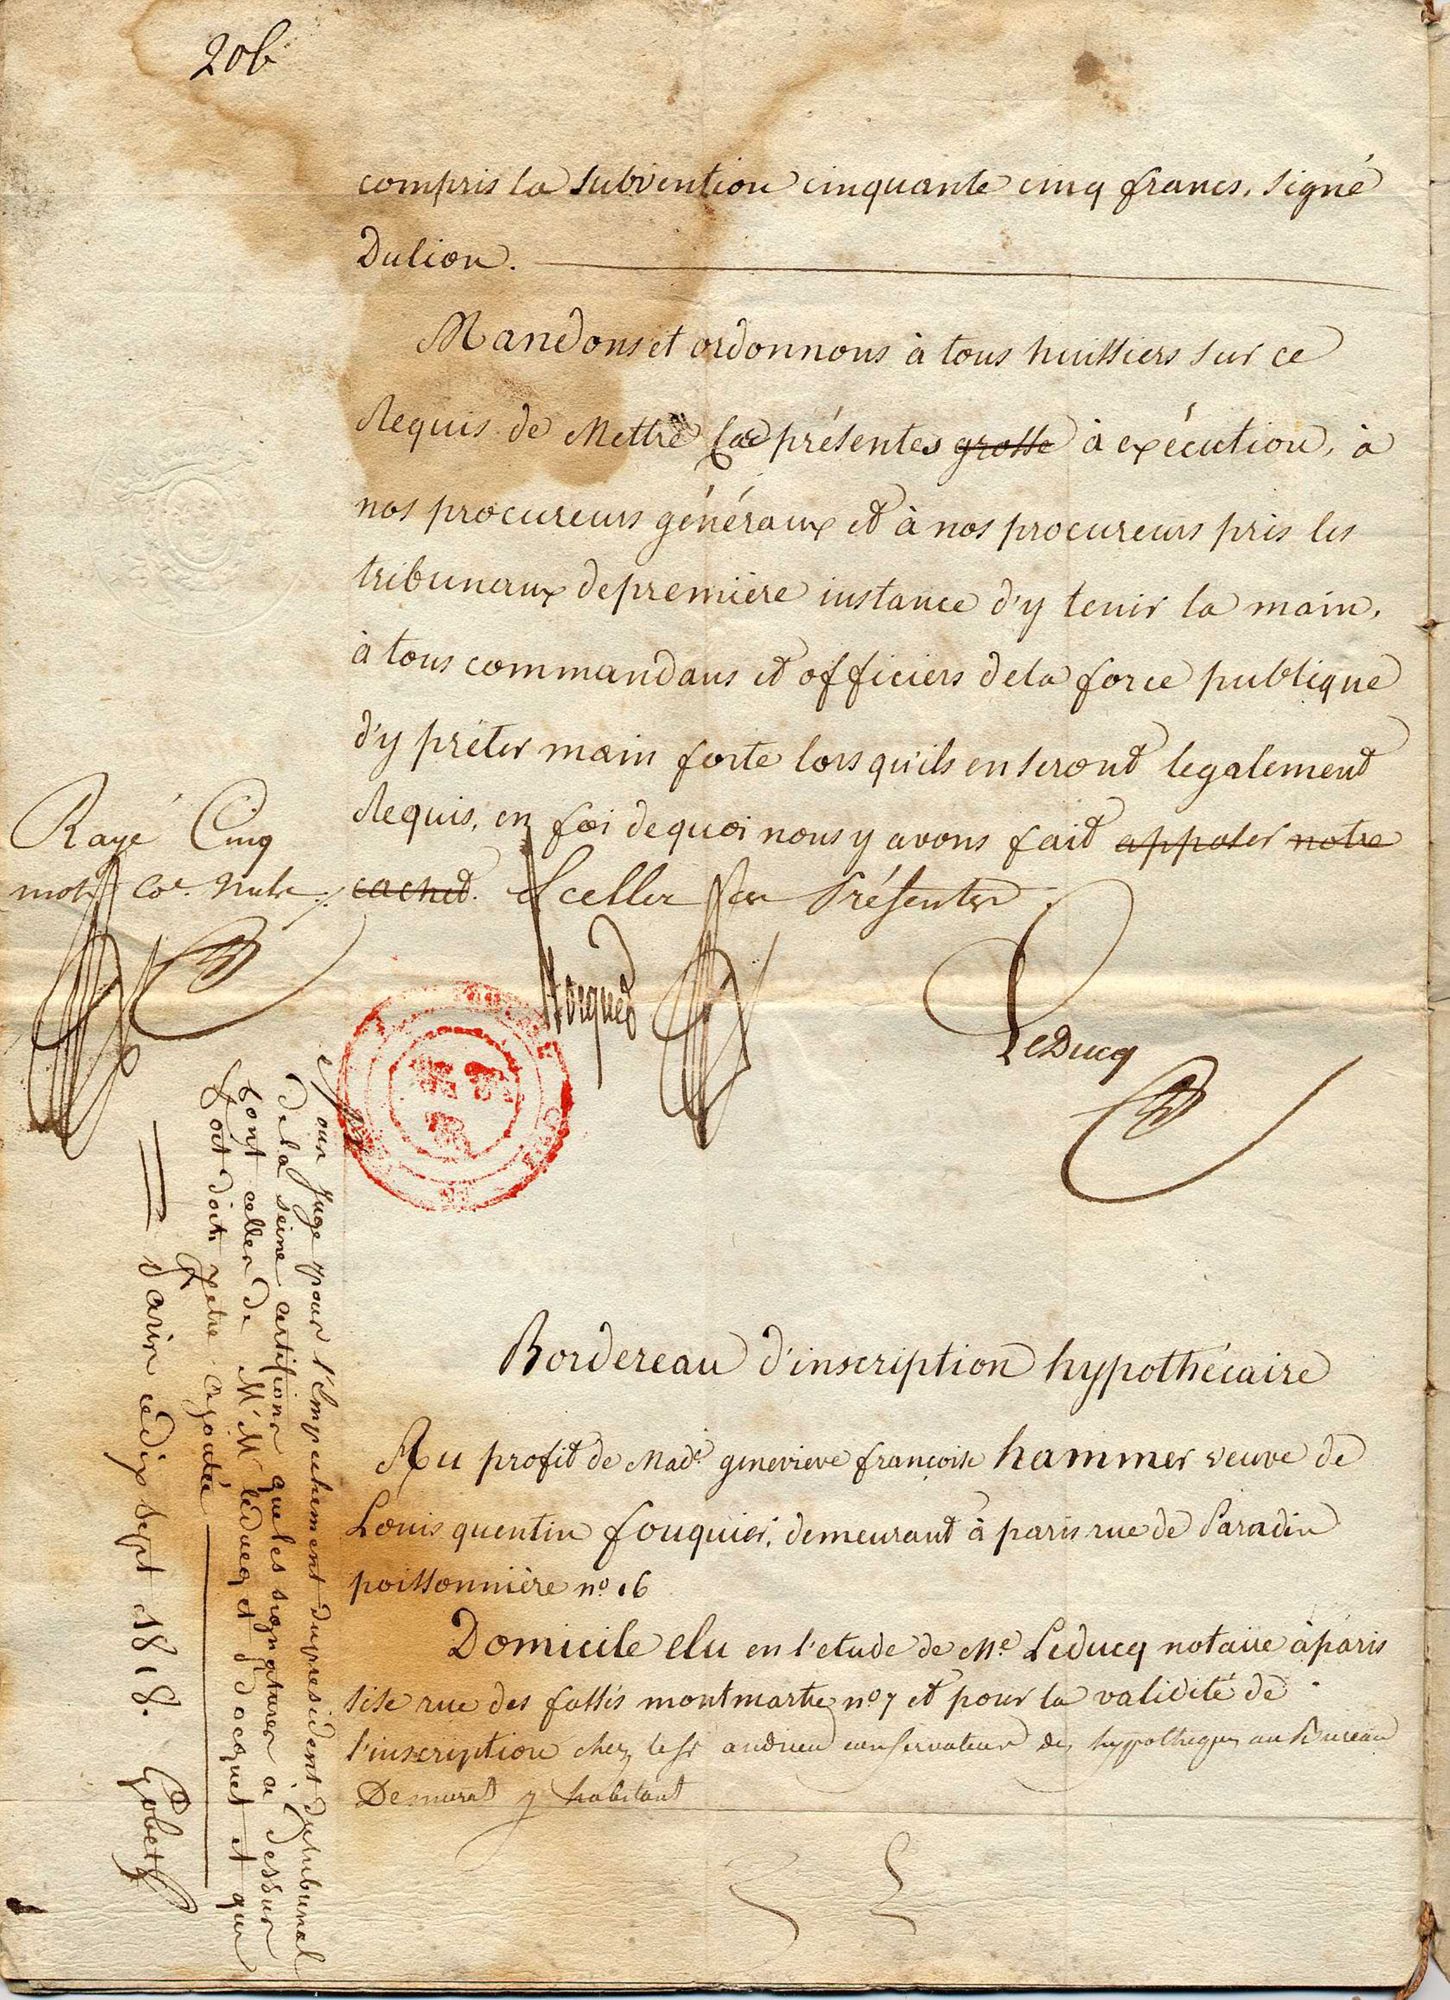 20b
compris la subvention cinquante cinq francs. signé
Dulion.
Mandons et ordonnons à tous huissiers sur ce
Requis de Mettre les présentes grosse à exécution, à
nos procureurs généraux et à nos procureurs près les
tribunaux de première instance d'y tenir la main,
à tous commandans et officiers de la force publique
d'y préter main forte lorsqu'ils en seront legalement
Requis, en foi de quoi nous y avons fait apposer notre
cachet. Sceller ces Présentes.
Rayé Cinq
mots co.e nuls
Leducq
Bordereau d'inscription hypothécaire
Au profit de Made genevieve françoise hammer veuve de
Louis quentin fouquier, demeurant à paris rue de Paradis
poissonnière no 16
Domicile elu en l'etude de Me Leducq notaire à paris
sise rue des fossés montmartre no 7 et pour la validité de
l'inscription chez le Sr andrieu conservateur des hypotheques au Bureau
De murat y habitant
Nous juge pour l'Empechement du president du tribunal
de la seine certifions que les signatures ci dessus
sont celles de Mr Mr leducq et d'ocquet et que
foi doit y etre ajoutée
Paris ce dix sept 1818. Gobert